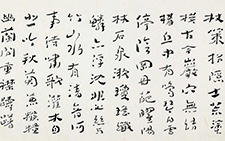 杖策招隱士荒塗
橫古今巖穴無結
構丘中有鳴琴白雪
停陰岡丹葩曜陽
林石泉漱瓊瑤纖
鱗亦浮沈非必絲與
竹山水有清音何
事待嘯歌灌木自
悲吟秋菊兼餱糧
幽蘭間重襟躊躇